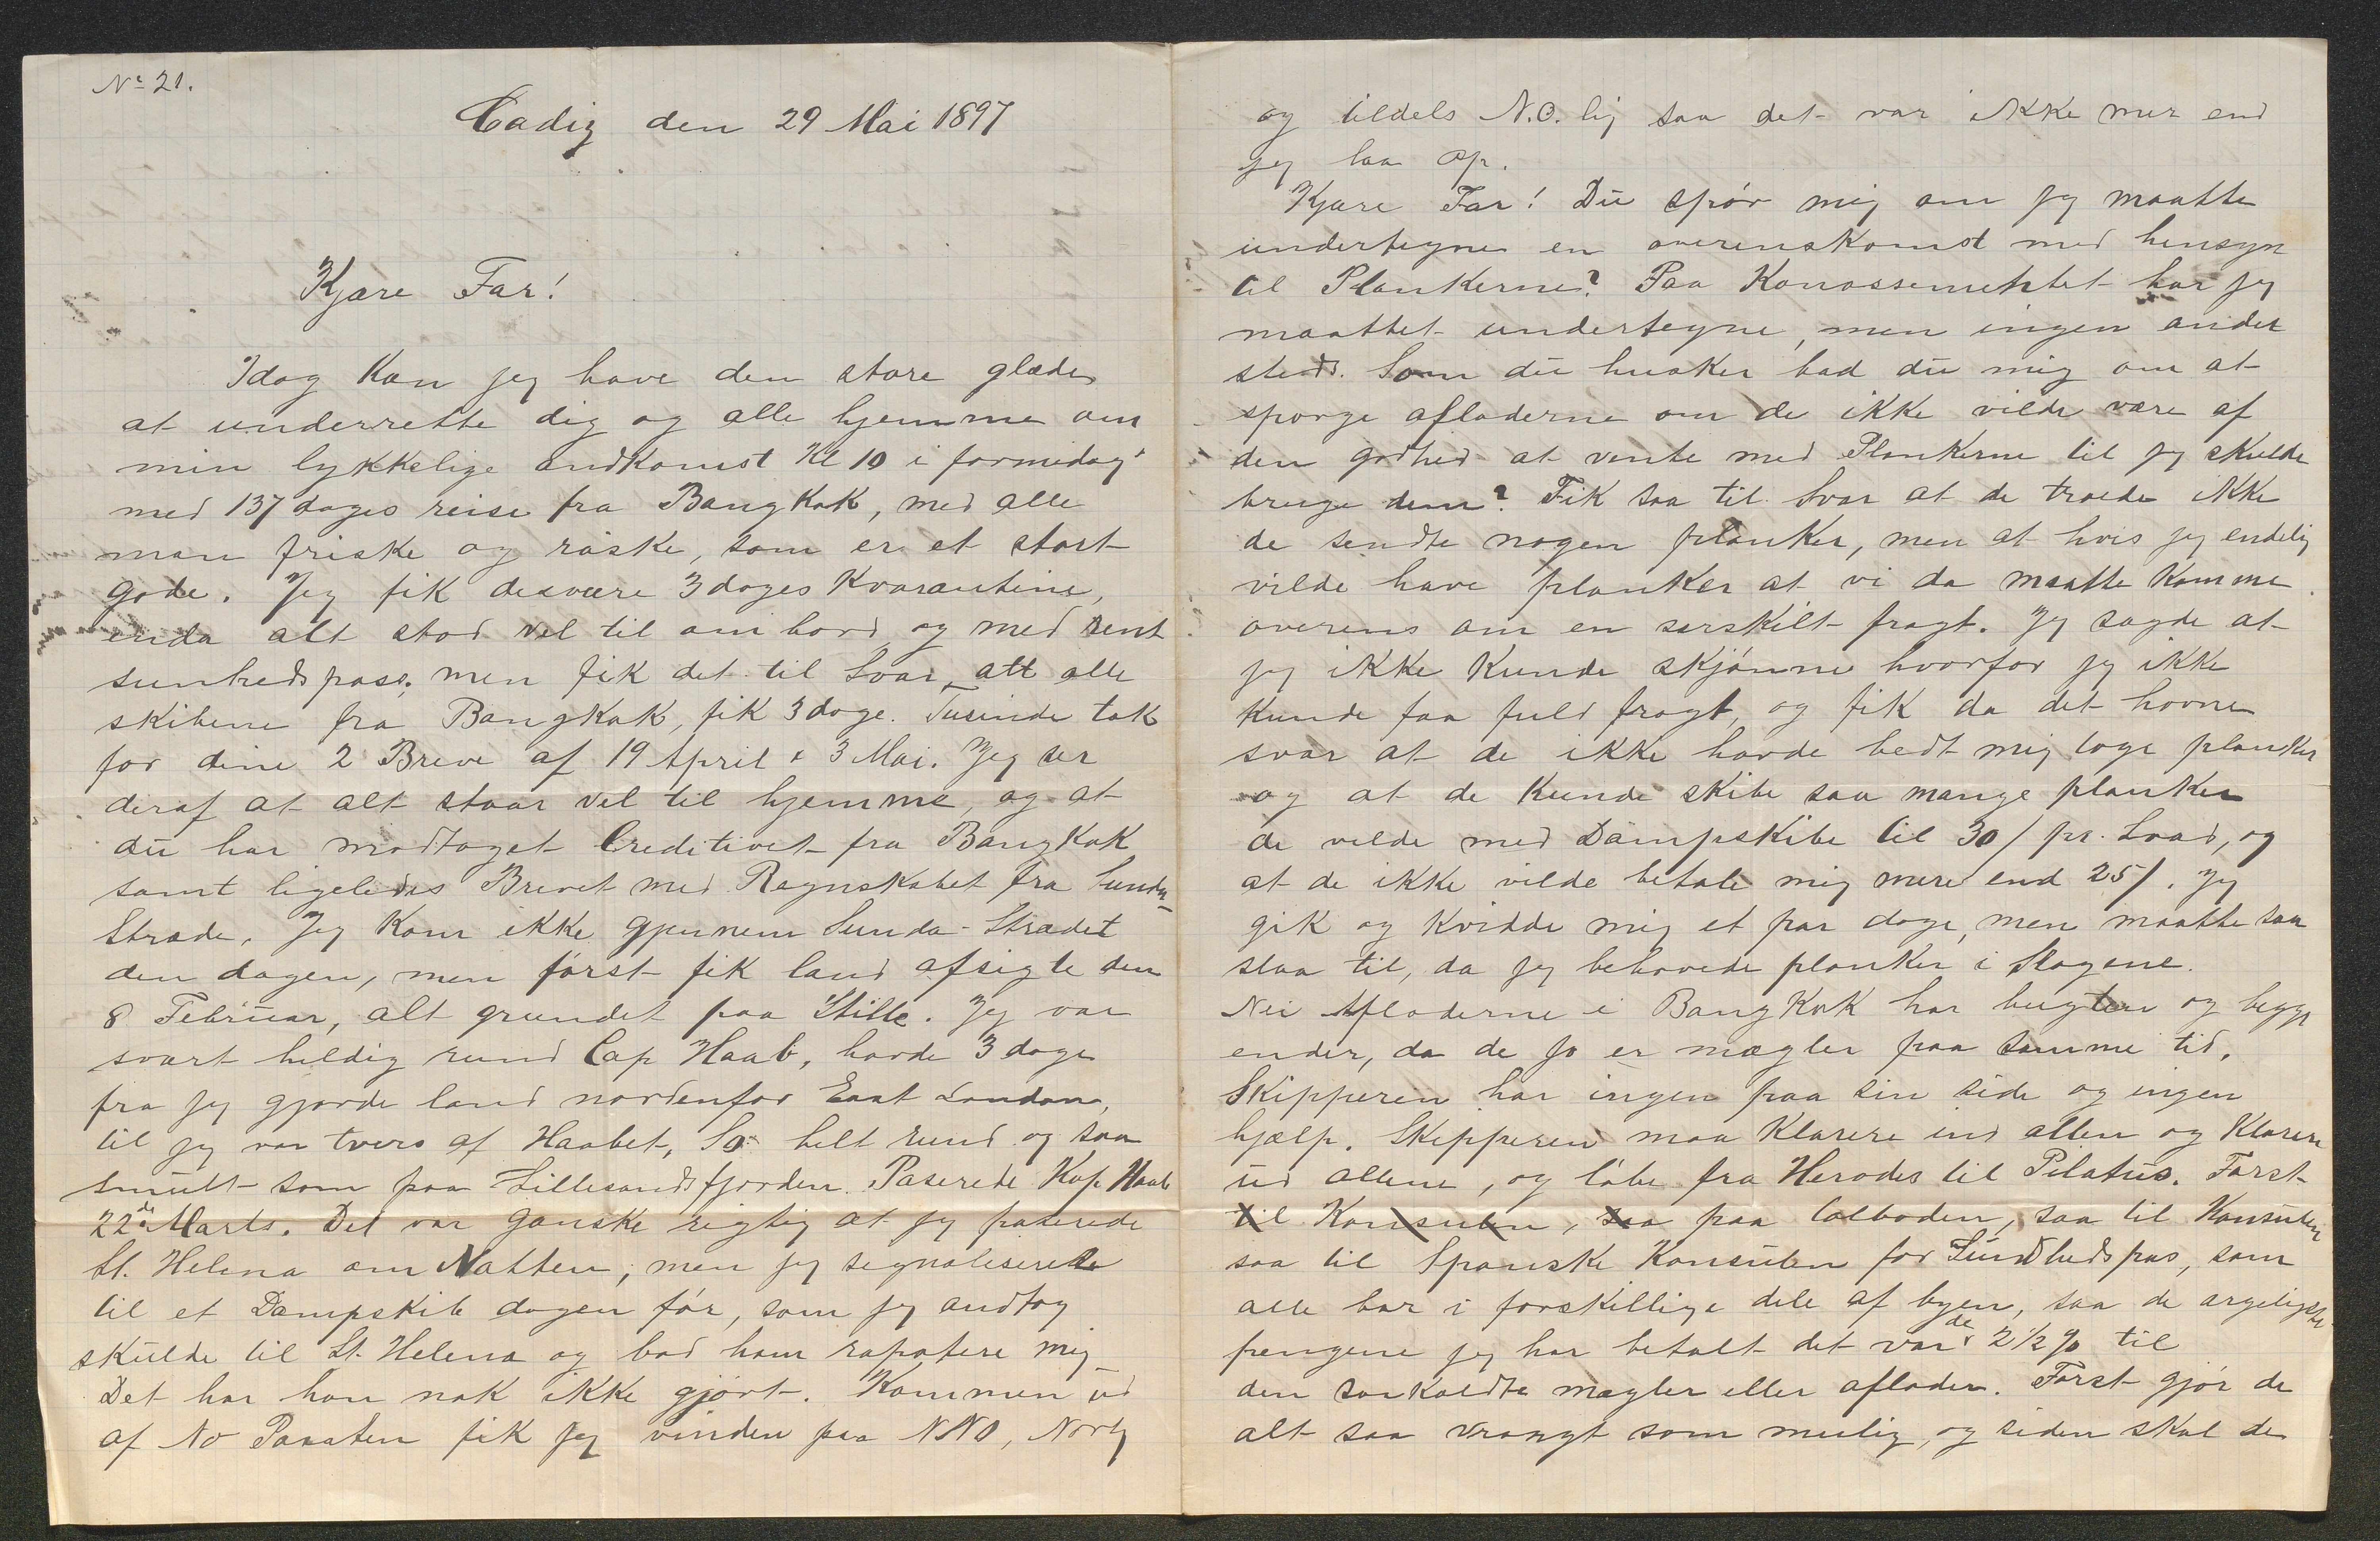 No 21.
Cadiz den 29 Mai 1897
Kjære Far!
Idag kan jeg have den store glæde
at underrette dig og alle hjemme om
min lykkelige andkomst Kl 10 i formidag
med 137 dages reise fra Bangkok, med alle
man friske og raske, som er et stort
gode. Jeg fik desværre 3 dages Kvarantine,
enda alt stod vel til om bord og med rent
sunhedspass. men fik det til Svar, att alle
skibene fra Bangkok, fik 3 dage. Tusinde tak
for dine 2 Breve af 19 April & 3 Mai. Jeg ser
deraf at alt staar vel til hjemme, og at
du har modtaget Creditivet fra Bangkok
samt ligeledes Brevet med Regnskabet fra Sunda-
Stræde. Jeg kom ikke gjennem Sunda-Strædet
den dagen, men først fik land afsigte den
8 Februar, alt grundet paa Stille. Jeg var
svært heldig rund Cap Haab, havde 3 dage
fra jeg gjorde land nordenfor East London,
til jeg var tvers af Haabet, Så helt rund og saa
smult som paa Lillesandsfjorden. Paserede Kap Haab
22de Marts. Det var ganske rigtig at jeg paserede
St. Helena om Natten, men jeg signaliserede
til et Dampskib dagen før, som jeg andtog
skulde til St. Helena og bad ham raportere mig
Det har han nok ikke gjort. Kommen ud
af No Pasaten fik jeg vinden paa NNO, Nordlg
og tildels N.O. lig saa det var ikke mer end
jeg laa op.
Kjære Far! Du spør mig om jeg maatte
undertegne en overenskomst med hensyn
til Plankerne? Paa Konossementet har jeg
maattet undertegne, men ingen andet
steds. Som du husker bad du mig om at
spørge afladerne om de ikke vilde være af
den godhed at vente med Plankerne til jeg skulde
bruge dem? Fik saa til Svar at de troede ikke
de sendte nogen planker, men at hvis jeg endelig
vilde have planker at vi da maatte komme
overens om en særskilt fragt. Jeg sagde at
jeg ikke kunde skjønne hvorfor jeg ikke
kunde faa fuld fragt, og fik da det hovne
svar at de ikke havde bedt mig tage planker
og at de kunde skibe saa mange planker
de vilde med Dampskibe til 30/ pr. Load, og
at de ikke vilde betale mig mere end 25/. Jeg
gik og kvidde mig et par dage, men maatte saa
slaa til, da jeg behøvede planker i Stagene.
Nei Afladerne i Bangkok har bugten og begge
ender, da de jo er mægler paa samme tid.
Skipperen har ingen paa sin side og ingen
hjælp. Skipperen maa klarere ind allen og klarere
ud allene, og løbe fra Herodes til Pilatus. Først
til Konsulen, saa paa tolboden, saa til Konsulen
saa til Spanske Konsulen for Sundhedspas, som
alle bor i forskillige dele af byen, saa de ærgeligste
pengene jeg har betalt det var de 2 1/2 % til
den saakaldte mægler eller aflader. Først gjør de
alt saa vrangt som mulig, og siden skal de